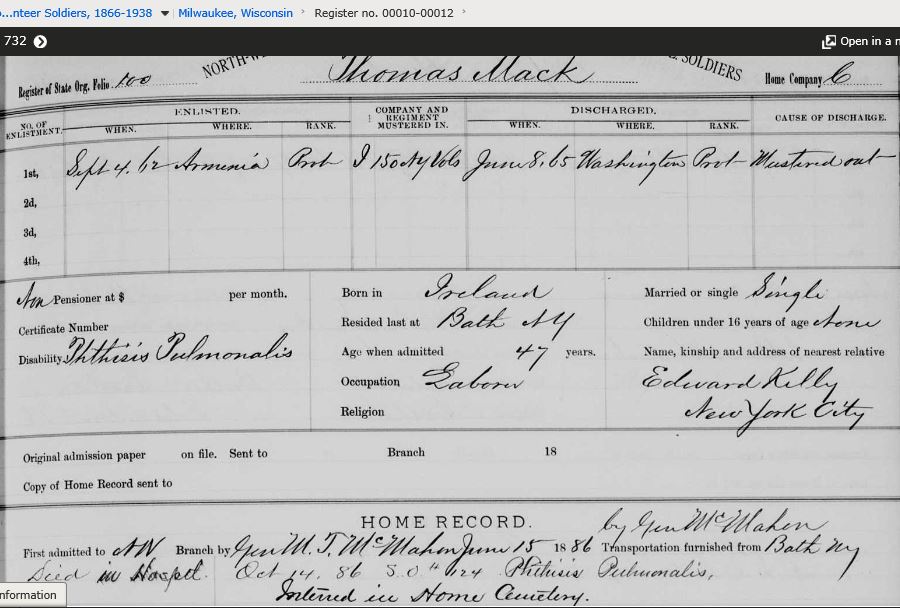 ...nteer Soldiers, 1866-1938 Milwaukee, Wisconsin › Register no. 00010-00012 ›
732 Open in a n
Register of State Org. Folio 100 NORTH-W Thomas Mack SOLDIERS Home Company C
NO. OF ENLISTMENT. ENLISTED. COMPANY AND REGIMENT MUSTERED IN. DISCHARGED. CAUSE OF DISCHARGE.
WHEN. WHERE. RANK. WHEN. WHERE. RANK.
1st, Sept 4. 62 Armenia Prvt I 150 NY Vols June 8. 65 Washington Prvt Mustered out
2d,
3d,
4th,
Non Pensioner at $ per month. Born in Ireland Married or single Single
Certificate Number Resided last at Bath NY Children under 16 years of age None
Disability, Phthisis Pulmonalis Age when admitted 47 years. Name, kinship and address of nearest relative
Occupation Laborer Edward Killy
Religion New York City
Original admission paper on file. Sent to Branch 18
Copy of Home Record sent to
HOME RECORD. by Gen McMahon
First admitted to NW Branch by Gen M. T. McMahon June 15 1886 Transportation furnished from Bath NY
Died in Hospt. Oct 14. 86 S.O. 124 Phthisis Pulmonalis,
Interred in Home Cemetery.
nformation